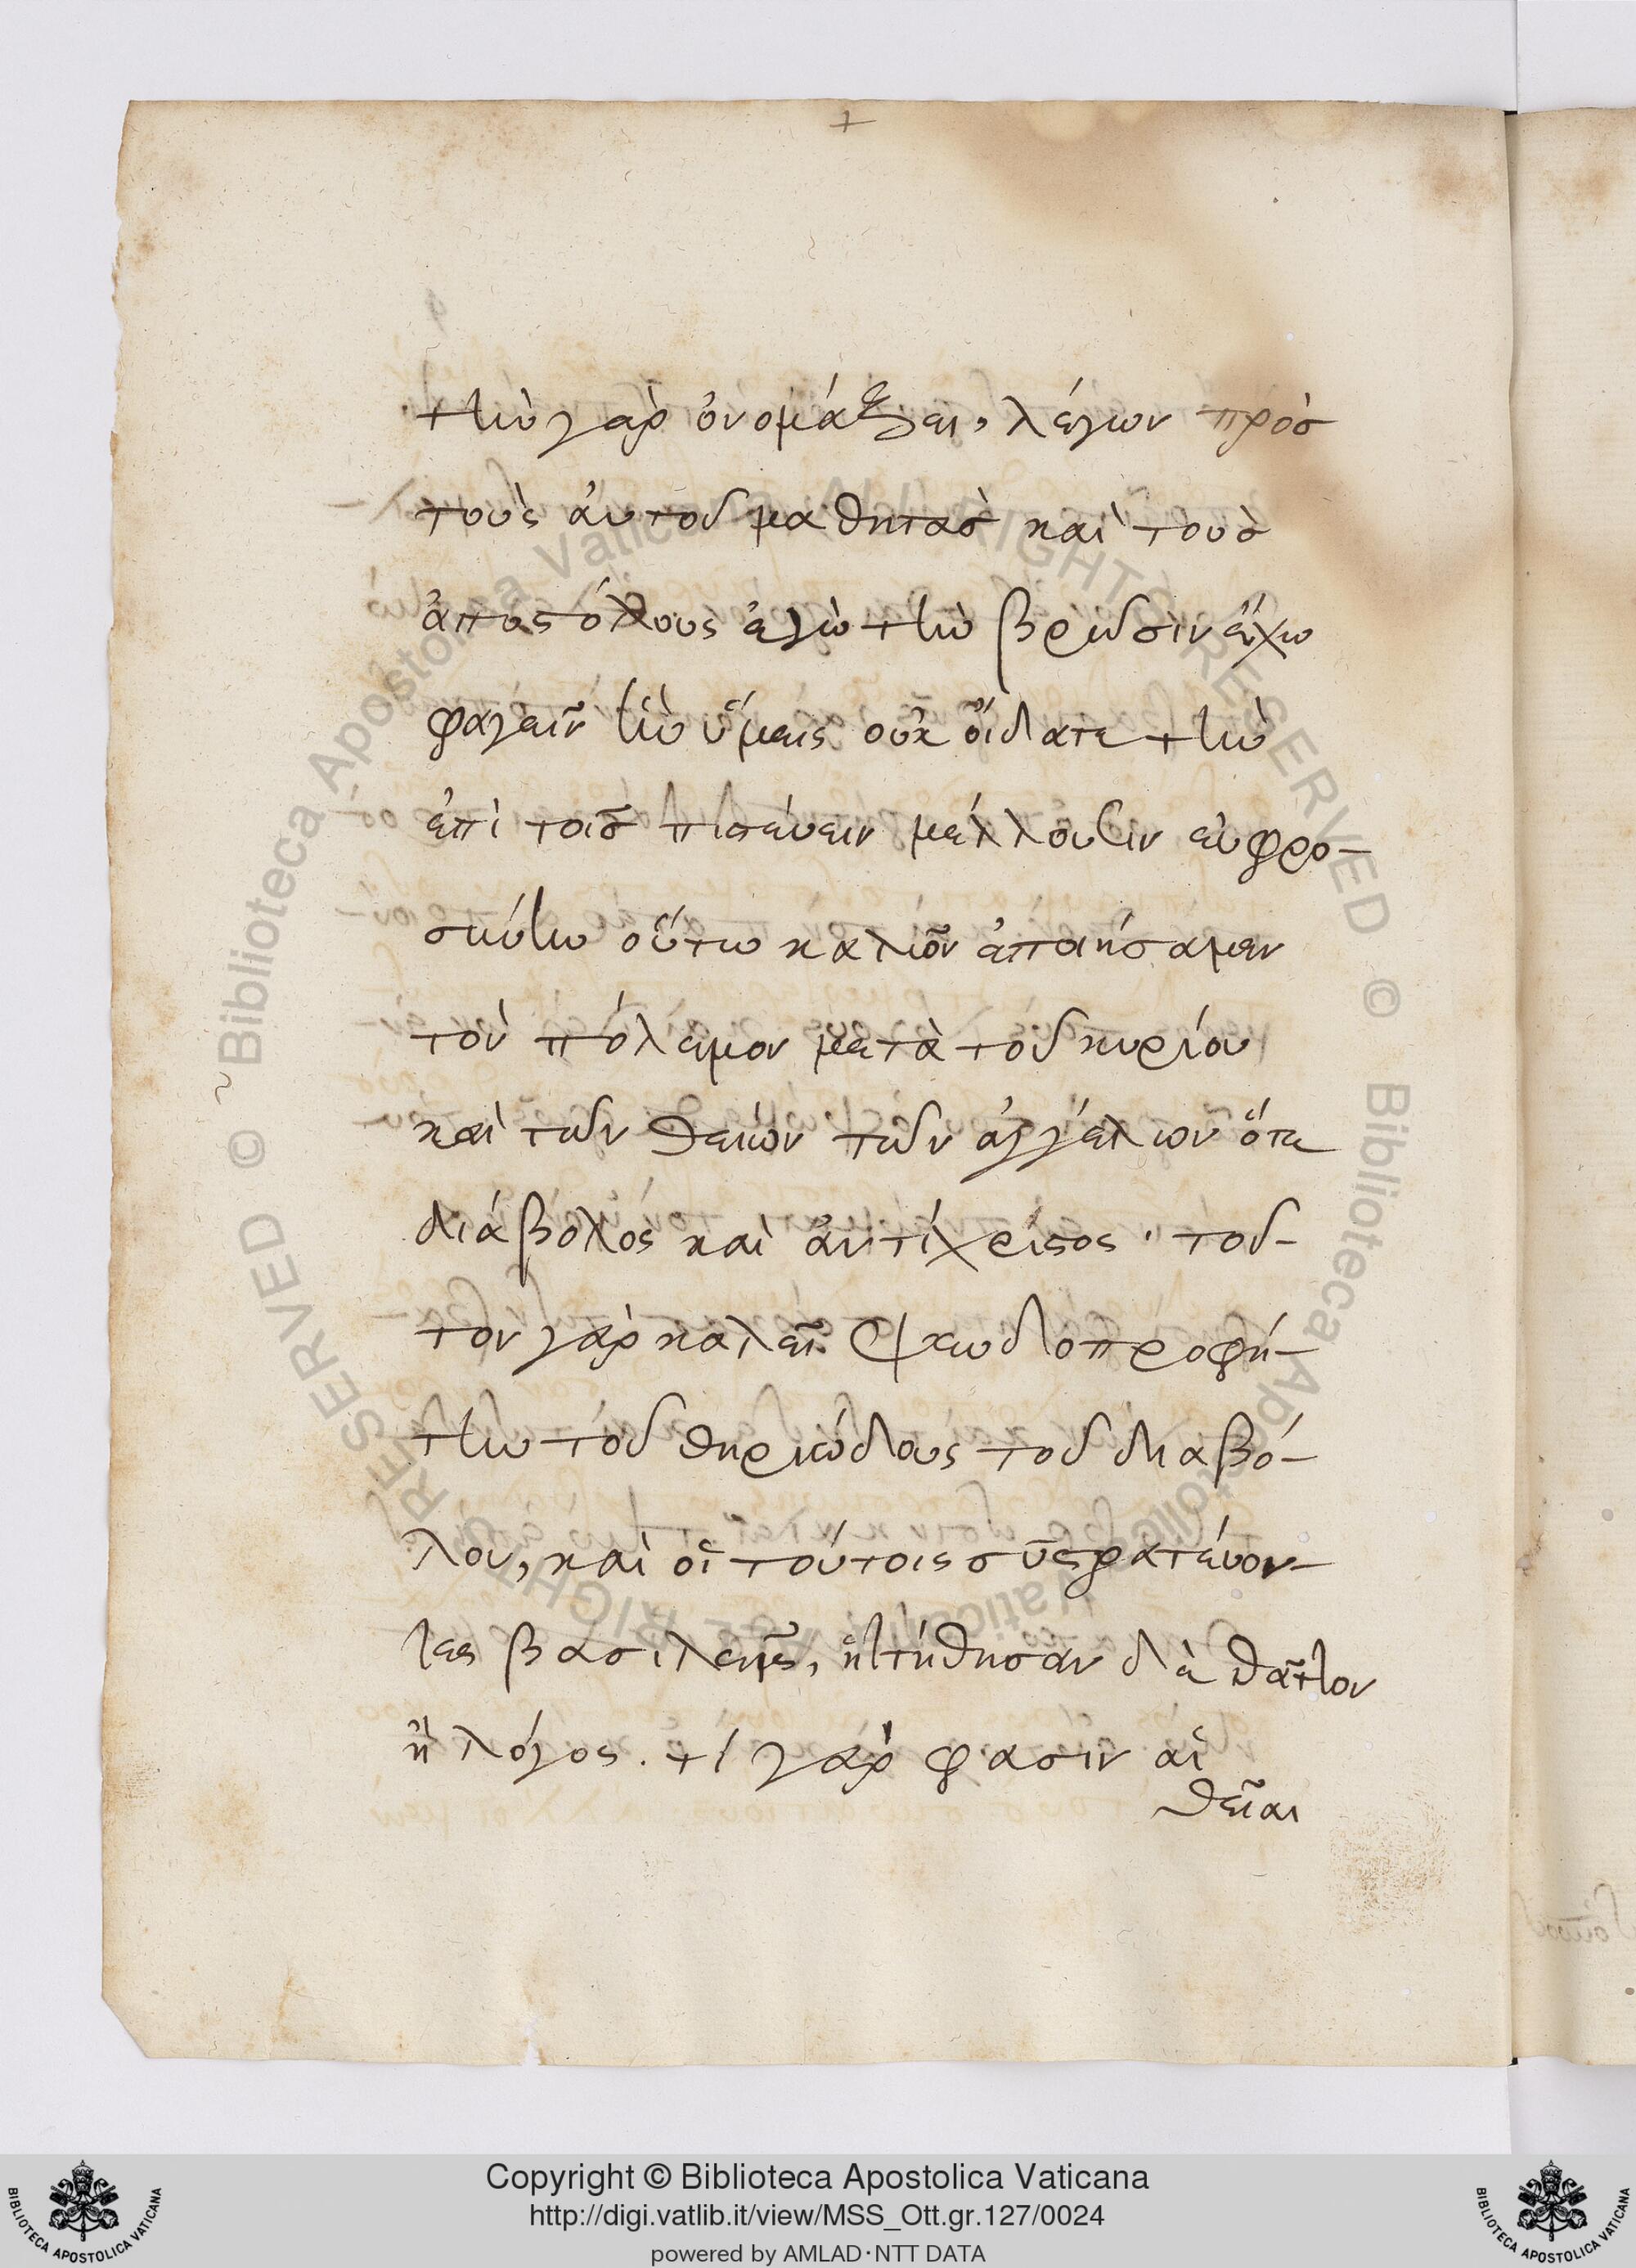 τὴν γὰρ ὀνομάζει, λέγων πρὸσ
τοὺς ἀυτοῦ μαθητὰσ καὶ τοὺσ
ἀποστόλους ἐγὼ τὴν βρῶσιν ἔχω
φαγεῖν ἣν ὑμεῖς οὐκ οἴδατε τὴν
ἐπὶ τοῖσ πιστεύειν μέλλουσιν εὐφρο-
σύνην οὕτω καλῶν ἐποιήσαμεν
τὸν πόλεμον μετὰ τοῦ κυρίου
καὶ τῶν θείων τῶν ἀγγέλων ὅτε
διάβολος καὶ ἀντίχριστος · τοῦ-
τον γὰρ καλεῖ ψευδοπροφή-
την τοῦ θηριώδους τοῦ διαβό-
λου, καὶ οἱ τούτοις συστρατεύον-
τες βασιλεῖς, ἡττήθησαν δὲ θᾶττον
ἢ λόγος. τί γάρ φασιν αἱ
θεῖαι
Copyright © Biblioteca Apostolica Vaticana
http://digi.vatlib.it/view/MSS_Ott.gr.127/0024
powered by AMLAD·NTT DATA
BIBLIOTECA APOSTOLICA VATICANA
BIBLIOTECA APOSTOLICA VATICANA